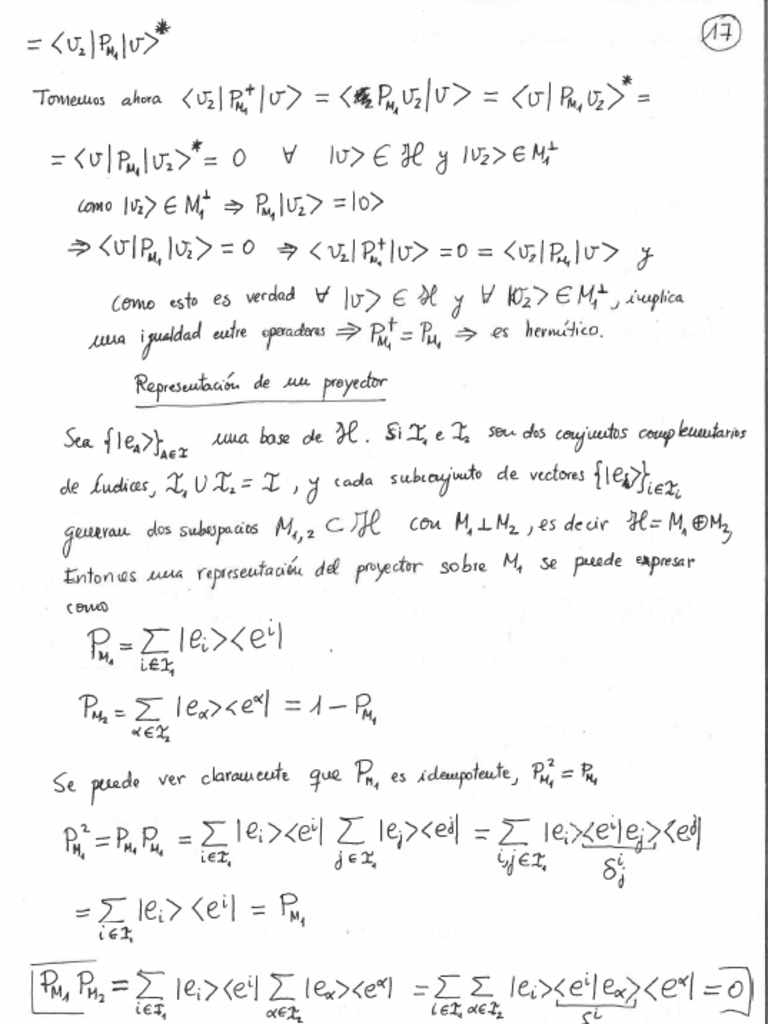 17
= <v₂|P_{M₁}|v>*
Tomemos ahora <v₂|P_{M₁}^+|v> = <P_{M₁}v₂|v> = <v|P_{M₁}v₂>* =
= <v|P_{M₁}|v₂>* = 0 ∀ |v> ∈ ℋ y |v₂> ∈ M₁^⊥
como |v₂> ∈ M₁^⊥ ⇒ P_{M₁}|v₂> = |0>
⇒ <v|P_{M₁}|v₂> = 0 ⇒ <v₂|P_{M₁}^+|v> = 0 = <v₂|P_{M₁}|v> y
como esto es verdad ∀ |v> ∈ ℋ y ∀ |v₂> ∈ M₁^⊥, implica
una igualdad entre operadores ⇒ P_{M₁}^+ = P_{M₁} ⇒ es hermítico.
Representación de un proyector
Sea {|e_A>}_{A∈I} una base de ℋ. Si I₁ e I₂ son dos conjuntos complementarios
de índices, I₁ ∪ I₂ = I, y cada subconjunto de vectores {|e_i>}_{i∈I_i}
generan dos subespacios M_{1,2} ⊂ ℋ con M₁ ⊥ M₂, es decir ℋ = M₁ ⊕ M₂,
Entonces una representación del proyector sobre M₁ se puede expresar
como
P_{M₁} = ∑_{i∈I₁} |e_i><e^i|
P_{M₂} = ∑_{α∈I₂} |e_α><e^α| = 1 - P_{M₁}
Se puede ver claramente que P_{M₁} es idempotente, P_{M₁}² = P_{M₁}
P_{M₁}² = P_{M₁} P_{M₁} = ∑_{i∈I₁} |e_i><e^i| ∑_{j∈I₁} |e_j><e^j| = ∑_{i,j∈I₁} |e_i><e^i|e_j><e^j|
δ^i_j
= ∑_{i∈I₁} |e_i><e^i| = P_{M₁}
P_{M₁} P_{M₂} = ∑_{i∈I₁} |e_i><e^i| ∑_{α∈I₂} |e_α><e^α| = ∑_{i∈I₁} ∑_{α∈I₂} |e_i><e^i|e_α><e^α| = 0